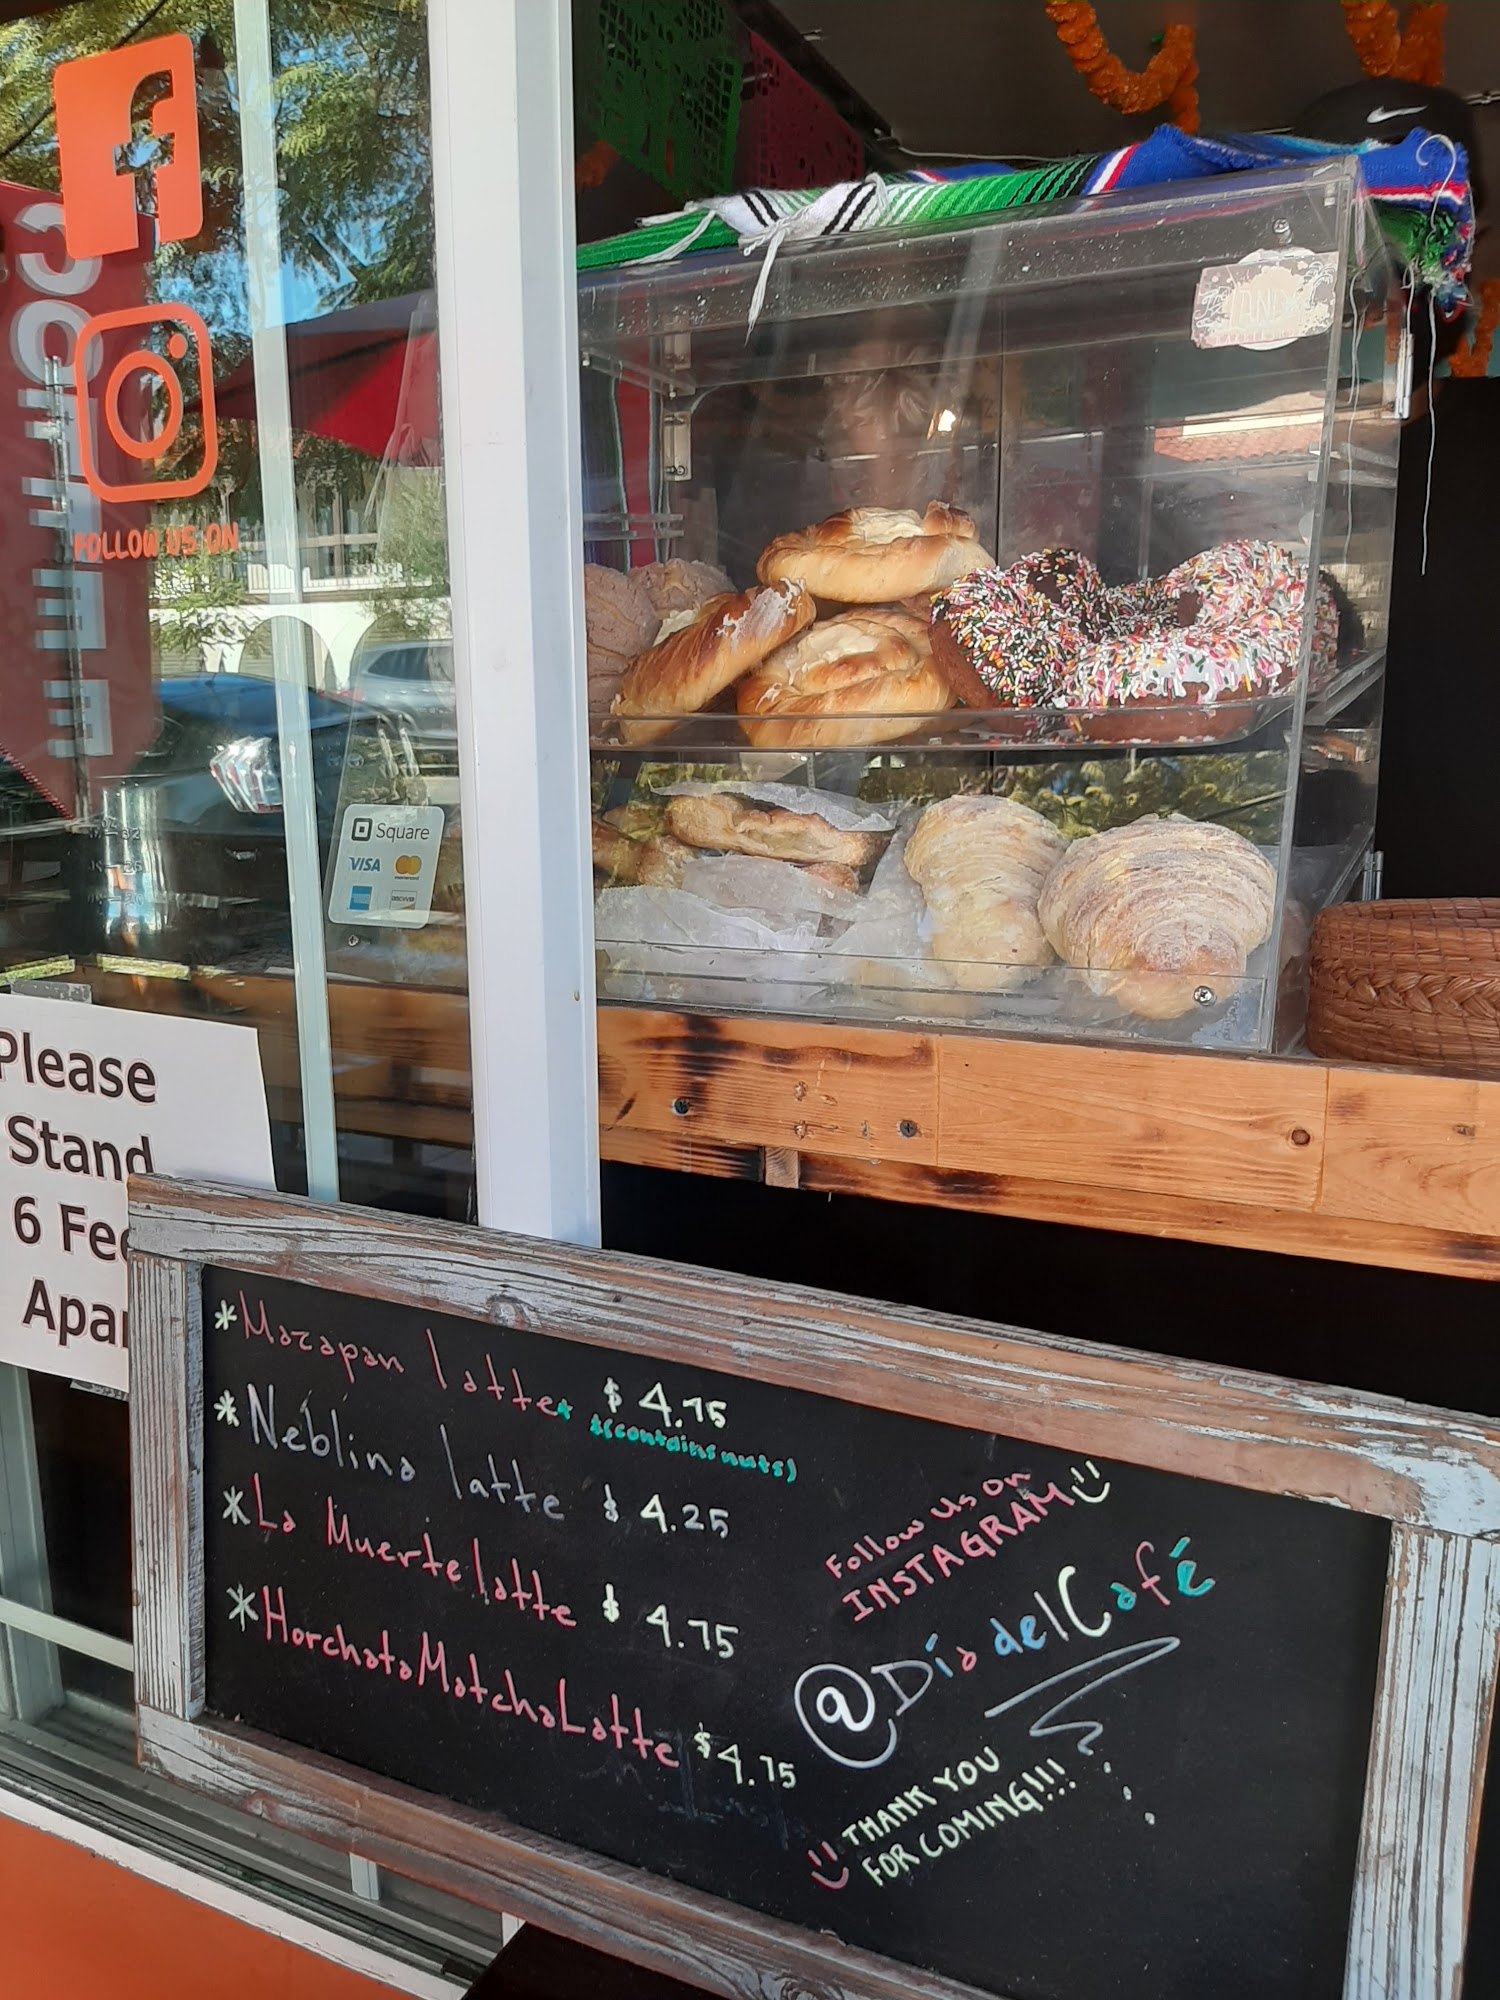 FOLLOW US ON
COFFEE
Square
VISA
DISCOVER
Please
Stand
6 Fee
Apar
*Mazapan latte* $4.75
*(contains nuts)
*Neblina latte $4.25
*La Muerte latte $4.75
*Horchata Matcha Latte $4.75
Follow Us On
INSTAGRAM
@Día del Café
THANK YOU
FOR COMING!!!